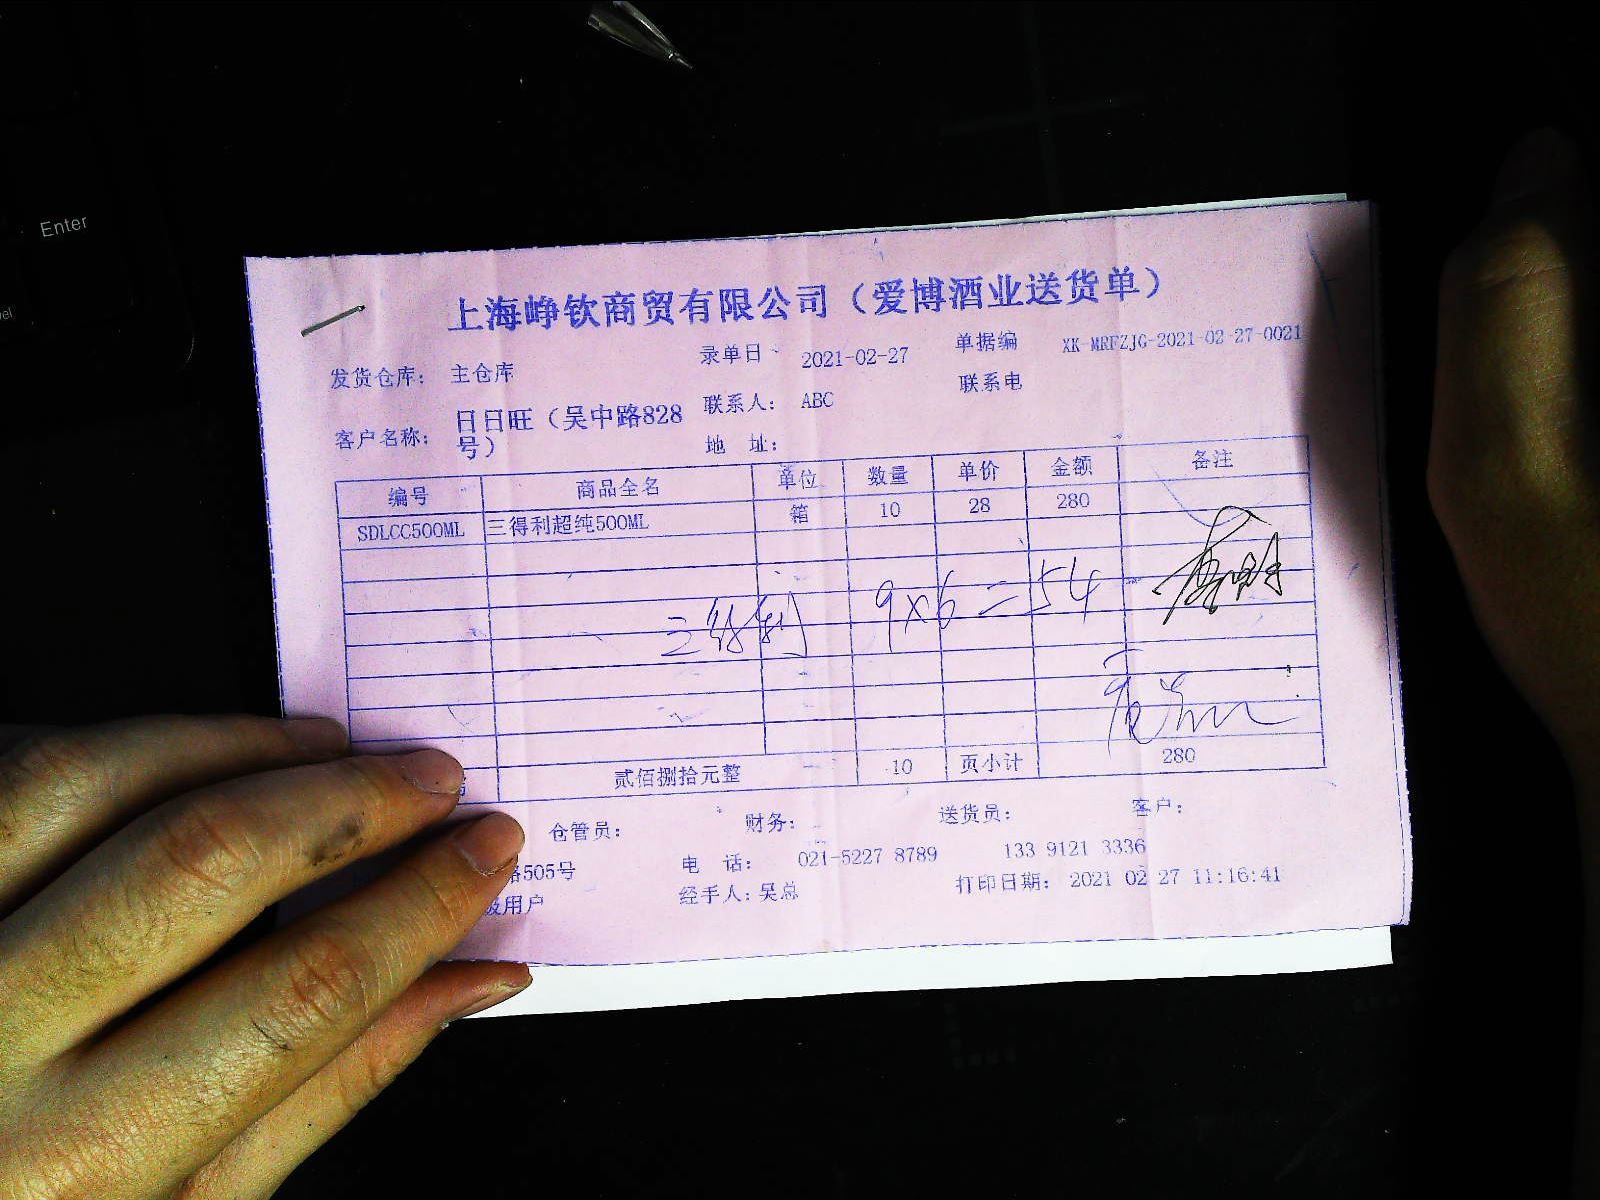 Enter
上海峥钦商贸有限公司（爱博酒业送货单）
发货仓库： 主仓库 录单日 2021-02-27 单据编 XK-MRFZJG-2021-02-27-0021
客户名称： 日日旺（吴中路828号） 联系人： ABC 联系电
地 址：
编号 商品全名 单位 数量 单价 金额 备注
SDLCC500ML 三得利超纯500ML 箱 10 28 280
三得利 9×6=54
贰佰捌拾元整 10 页小计 280
仓管员： 财务： 送货员： 客户：
路505号 电 话： 021-5227 8789 133 9121 3336
级用户 经手人：吴总 打印日期： 2021 02 27 11:16:41